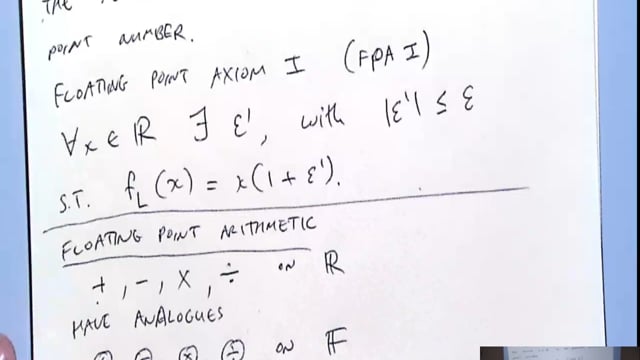 THE
POINT NUMBER.
FLOATING POINT AXIOM I (FPA I)
∀x ∈ ℝ ∃ ε', with |ε'| ≤ ε
S.T. fL(x) = x(1 + ε').
FLOATING POINT ARITHMETIC
+, -, ×, ÷ ON ℝ
HAVE ANALOGUES
⊕ ⊖ ⊗ ⨸ ON 𝔽